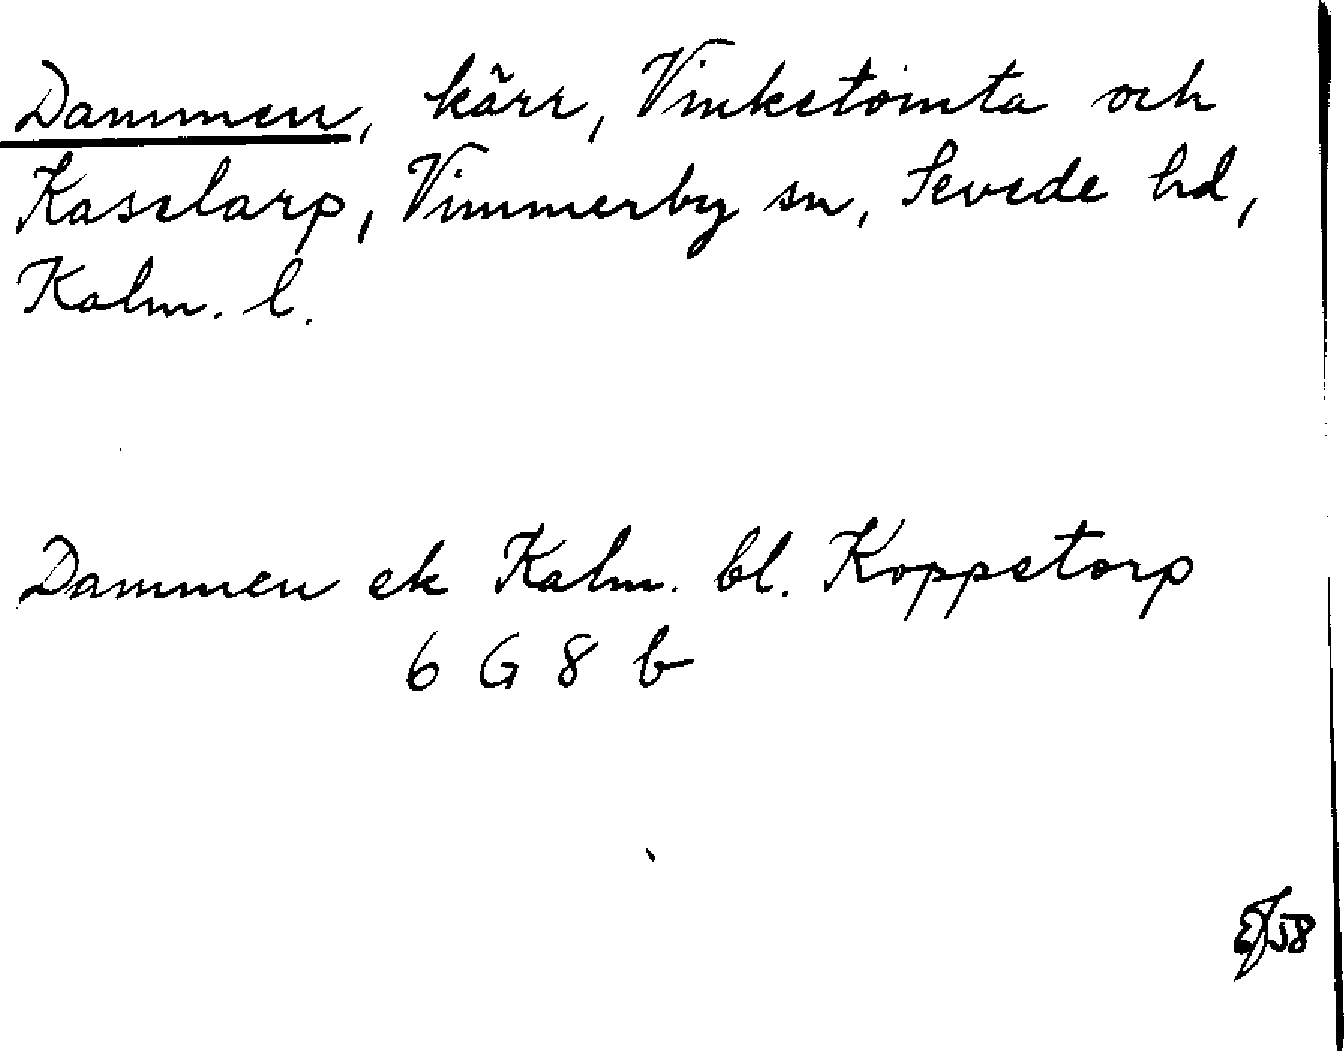 Dammen, kärr, Vinketomta och
Kaselarp, Vimmerby sn, Sevede hd,
Kalm. l.
Dammen ek Kalm. bl. Koppetorp
6 G 8 b
/58